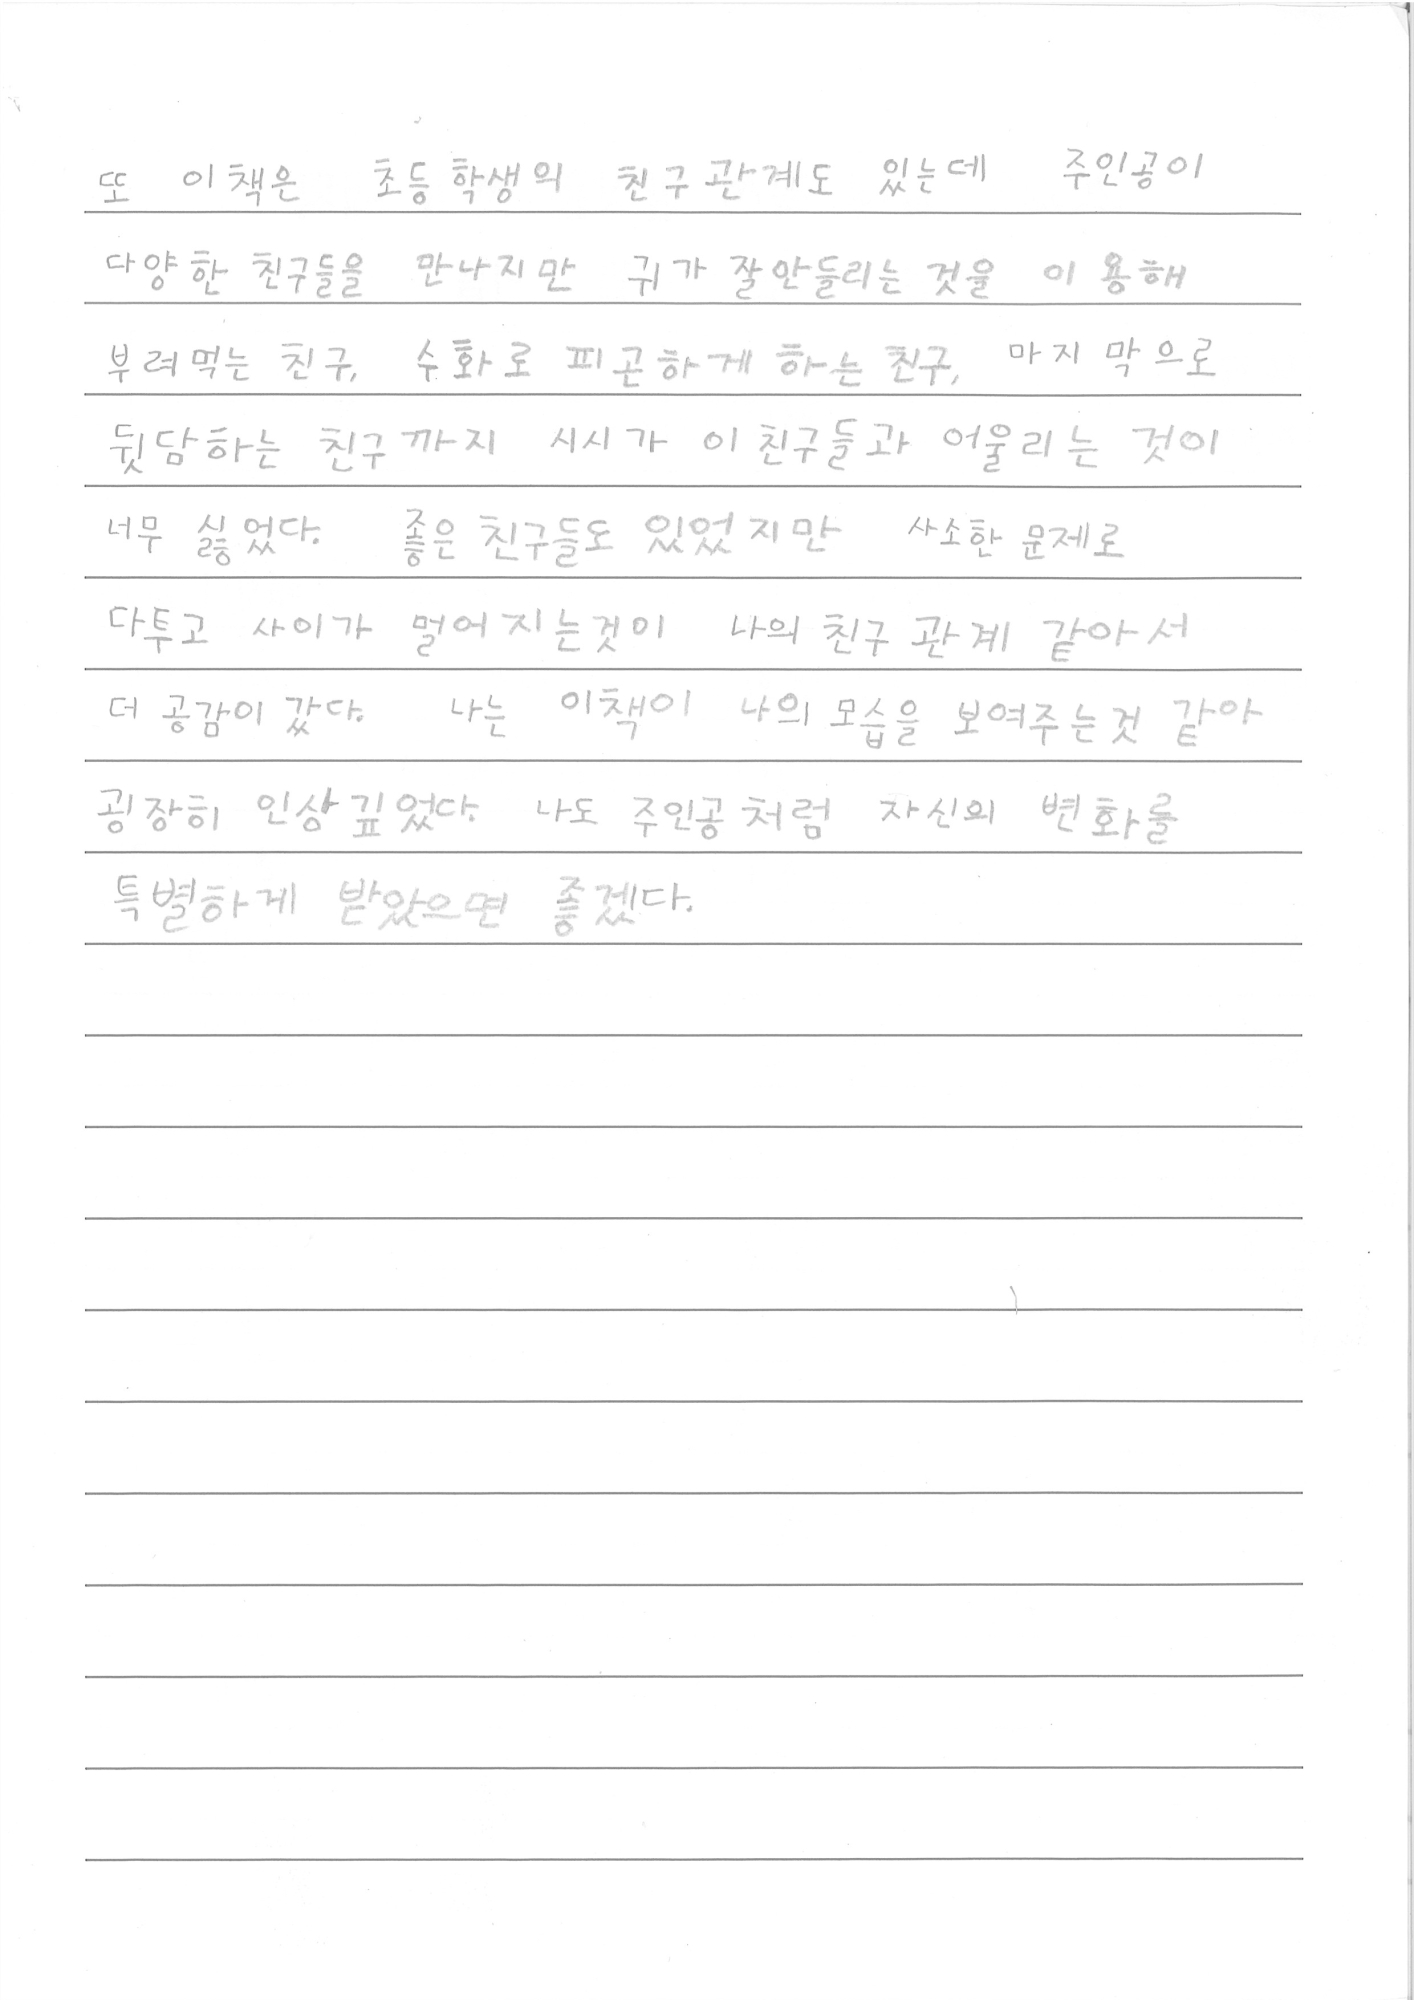 또 이책은 초등학생의 친구관계도 있는데 주인공이
다양한 친구들을 만나지만 귀가 잘안들리는 것을 이용해
부려먹는 친구, 수화로 피곤하게 하는 친구, 마지막으로
뒷담하는 친구까지 시시가 이친구들과 어울리는 것이
너무 싫었다. 좋은 친구들도 있었지만 사소한 문제로
다투고 사이가 멀어지는것이 나의 친구 관계 같아서
더 공감이 갔다. 나는 이책이 나의 모습을 보여주는것 같아
굉장히 인상깊었다. 나도 주인공처럼 자신의 변화를
특별하게 받았으면 좋겠다.